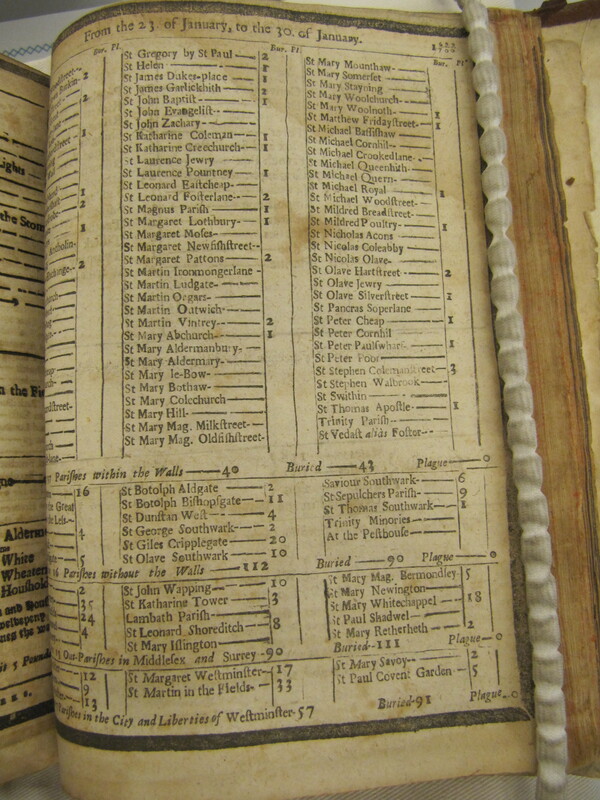 From the 23. of January, to the 30. of January.
Bur. Pl.
Bur. Pl.
Bur. Pl.
St Gregory by St Paul 2
St Helen 1
St James Dukes-place 1
St James Garlickhith 2
St John Baptiſt 1
St John Evangeliſt
St John Zachary
St Katharine Coleman 1
St Katharine Creechurch 1
St Laurence Jewry
St Laurence Pountney 1
St Leonard Eaſtcheap
St Leonard Foſterlane 2
St Magnus Pariſh 1
St Margaret Lothbury 1
St Margaret Moſes
St Margaret Newfiſhſtreet
St Margaret Pattons 2
St Martin Ironmongerlane
St Martin Ludgate
St Martin Orgars
St Martin Outwich
St Martin Vintrey 2
St Mary Abchurch 1
St Mary Aldermanbury
St Mary Aldermary
St Mary le-Bow
St Mary Bothaw
St Mary Colechurch
St Mary Hill
St Mary Mag. Milkſtreet
St Mary Mag. Oldfiſhſtreet
St Mary Mounthaw
St Mary Somerſet
St Mary Stayning
St Mary Woolchurch
St Mary Woolnoth
St Matthew Fridayſtreet 1
St Michael Baſſiſhaw 1
St Michael Cornhil
St Michael Crookedlane
St Michael Queenhith
St Michael Quern
St Michael Royal
St Michael Woodſtreet
St Mildred Breadſtreet
St Mildred Poultry
St Nicholas Acons
St Nicolas Coleabby
St Nicolas Olave
St Olave Hartſtreet 2
St Olave Jewry
St Olave Silverſtreet 1
St Pancras Soperlane
St Peter Cheap 1
St Peter Cornhil
St Peter Paulſwharf 1
St Peter Poor
St Stephen Colemanſtreet 3
St Stephen Walbrook
St Swithin
St Thomas Apoſtle 1
Trinity Pariſh
St Vedaſt aliàs Foſter
Pariſhes within the Walls 40 Buried 43 Plague 0
16
4
5
St Botolph Aldgate 2
St Botolph Biſhopſgate 11
St Dunſtan Weſt 4
St George Southwark 2
St Giles Cripplegate 20
St Olave Southwark 10
Saviour Southwark 6
St Sepulchers Pariſh 9
St Thomas Southwark 1
Trinity Minories
At the Peſthouſe
16 Pariſhes without the Walls 112 Buried 90 Plague 0
2
35
24
4
St John Wapping 10
St Katharine Tower 3
Lambath Pariſh
St Leonard Shoreditch 8
St Mary Iſlington
St Mary Mag. Bermondſey 5
St Mary Newington
St Mary Whitechappel 18
St Paul Shadwel
St Mary Retherheth 2
Out-Pariſhes in Middleſex and Surrey 90 Buried 111 Plague 0
12
9
13
St Margaret Weſtminſter 17
St Martin in the Fields 33
St Mary Savoy 2
St Paul Covent Garden 5
Pariſhes in the City and Liberties of Weſtminſter 57 Buried 91 Plague 0